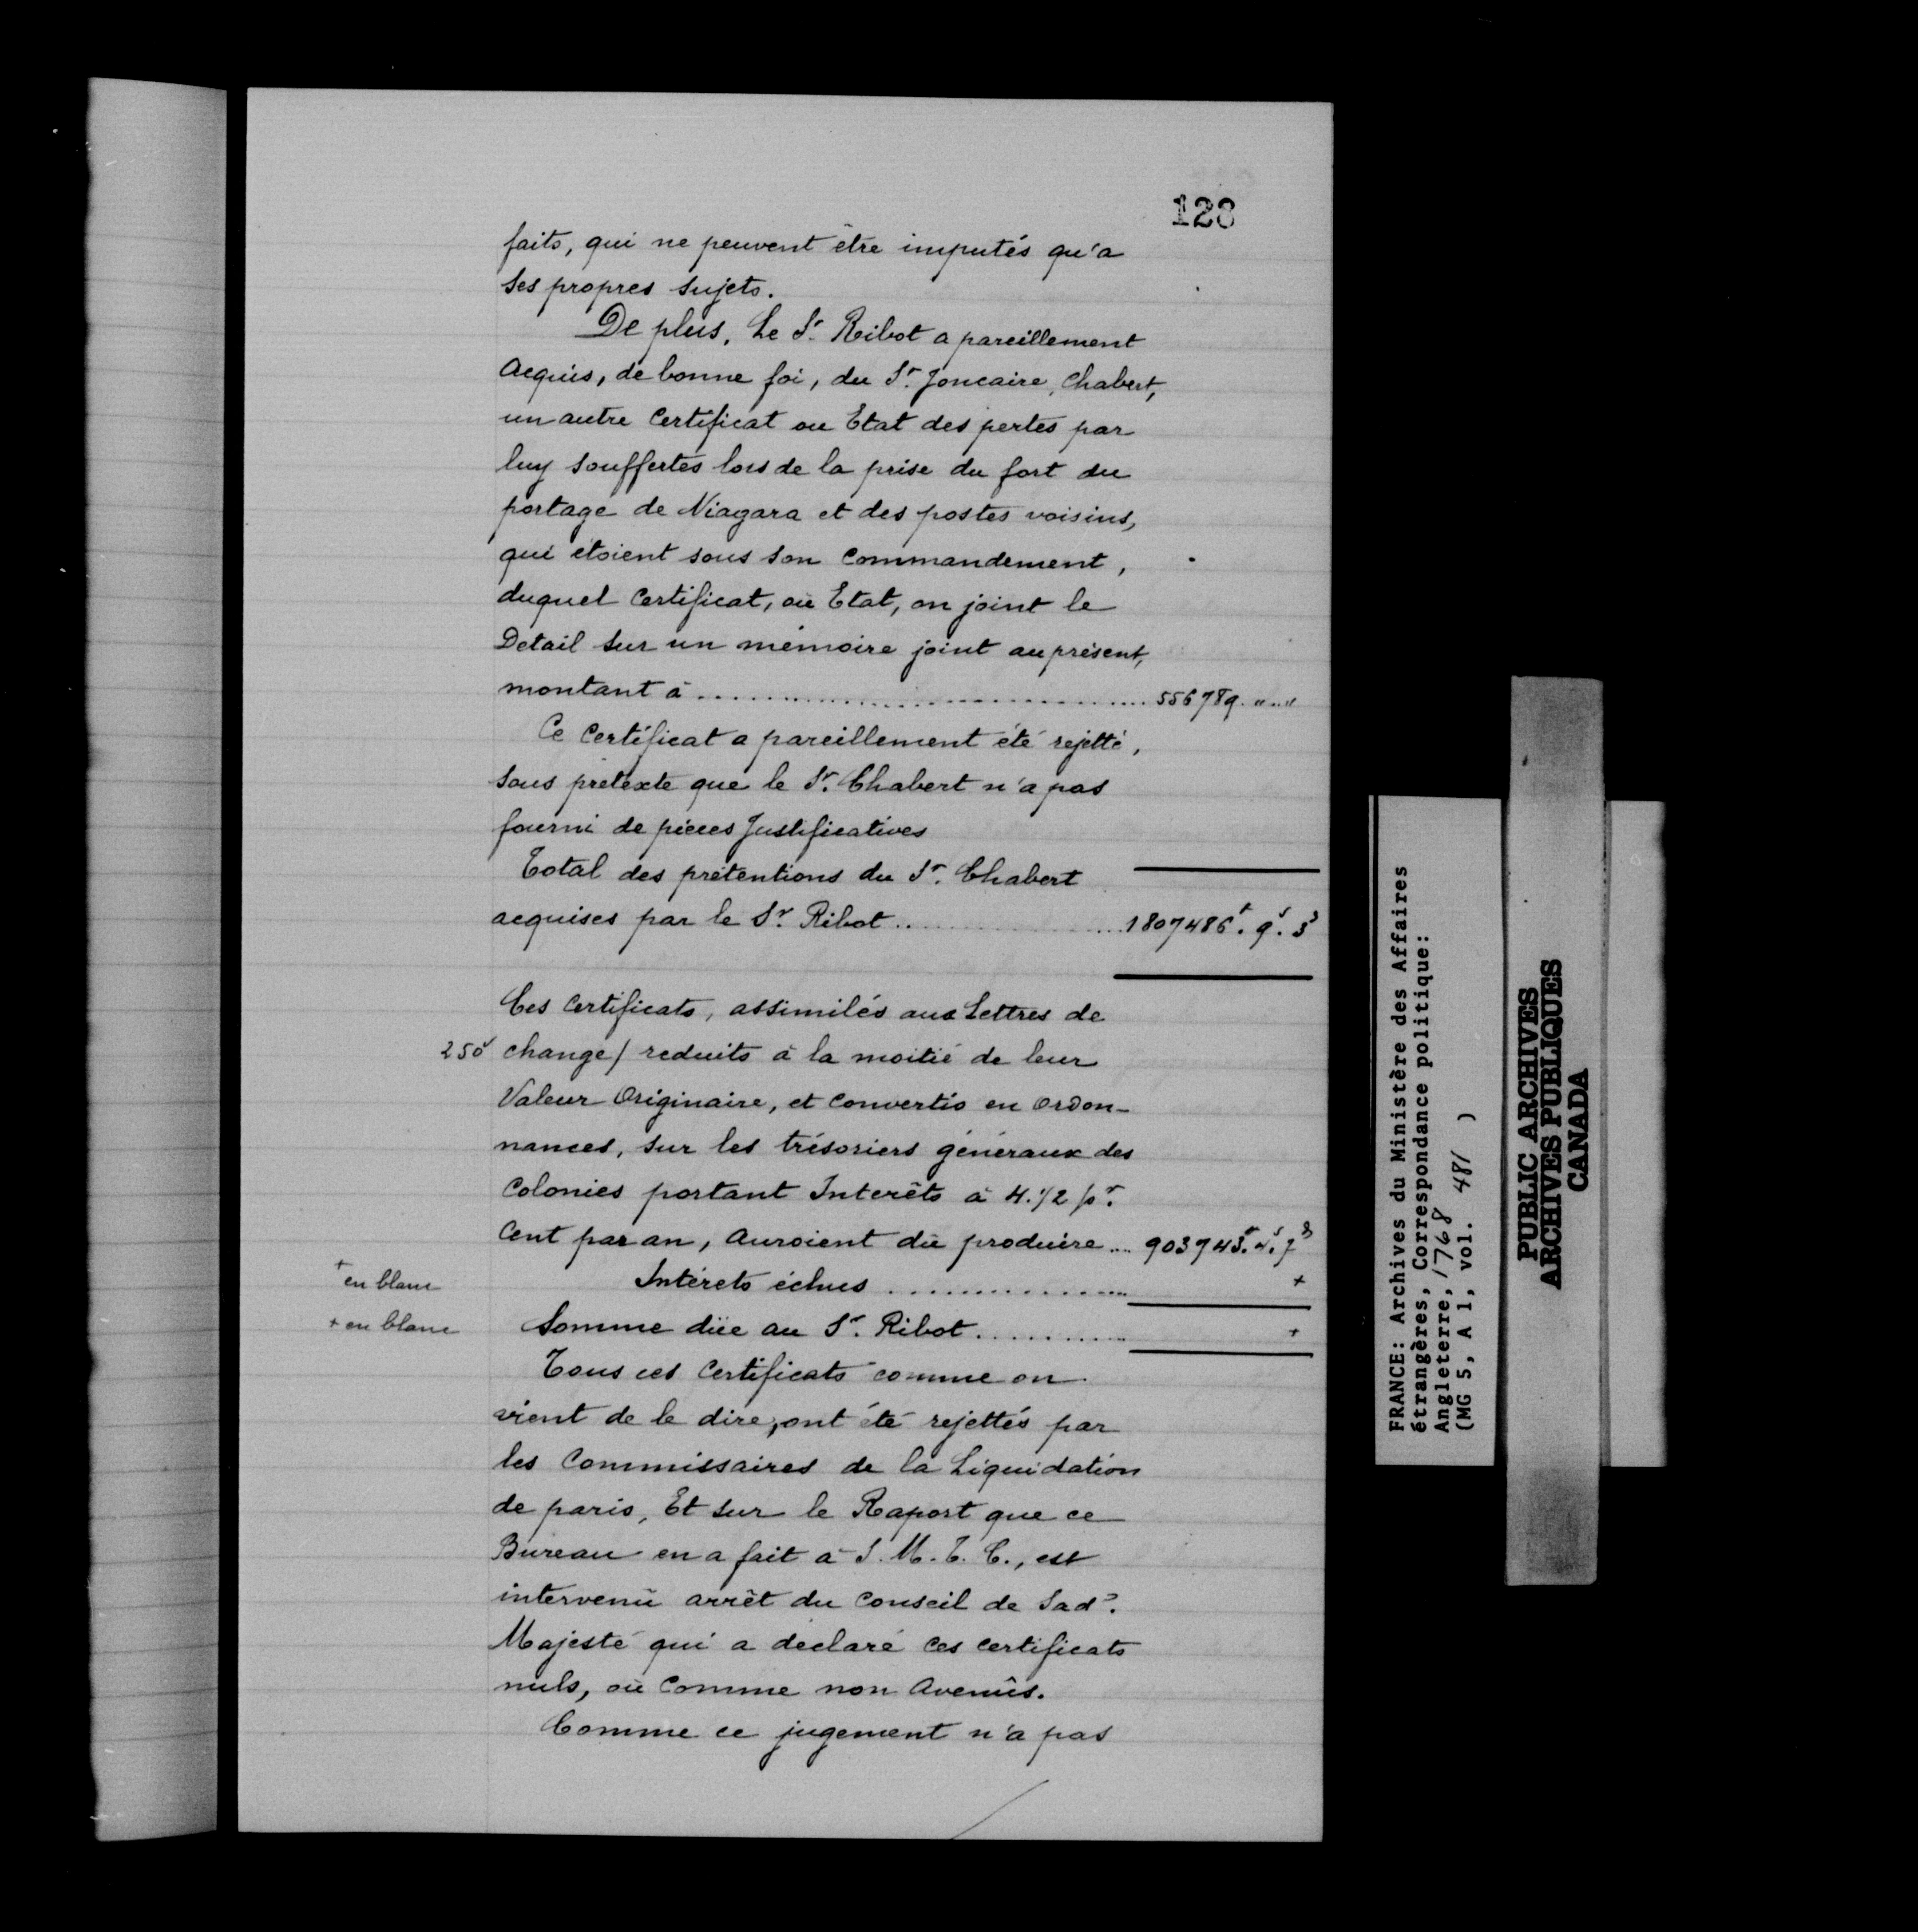 128
faits, qui ne peuvent être imputés qu'a
ses propres sujets.
De plus, Le Sr. Ribot a pareillement
acquis, de bonne foi, du Sr. Joncaire, Chabert,
un autre Certificat ou Etat des pertes par
luy souffertes lors de la prise du fort du
portage de Niagara et des postes voisins,
qui étoient sous son Commandement,
duquel Certificat, où Etat, on joint le
Detail sur un mémoire joint au présent,
montant à .......... 556789. " .. "
Ce Certificat a pareillement été rejetté,
sous prétexte que le Sr. Chabert n'a pas
fourni de pièces Justificatives
Total des prétentions du Sr. Chabert
acquises par le Sr. Ribot .......... 1807486t. 9s. 3d
Ces Certificats, assimilés aux Lettres de
250v change / reduits à la moitié de leur
Valeur Originaire, et Convertis en Ordon-
nances, sur les trésoriers généraux des
Colonies portant Interêts à 4. 1/2 pr.
Cent par an, Auroient dû produire .... 903743t. 4s. 7d
+ en blanc Intérets échus .......... +
+ en blanc Somme düe au Sr. Ribot .......... +
Tous ces Certificats comme on
vient de le dire, ont été rejettés par
les Commissaires de la Liquidation
de paris, Et sur le Raport que ce
Bureau en a fait à S. M. T. C., est
intervenû arrêt du Conseil de Sade.
Majesté qui a déclaré ces certificats
nuls, où Comme non Avenûs.
Comme ce jugement n'a pas
FRANCE: Archives du Ministère des Affaires
étrangères, Correspondance politique:
Angleterre, 1768
(MG 5, A 1, vol. 481 )
PUBLIC ARCHIVES
ARCHIVES PUBLIQUES
CANADA